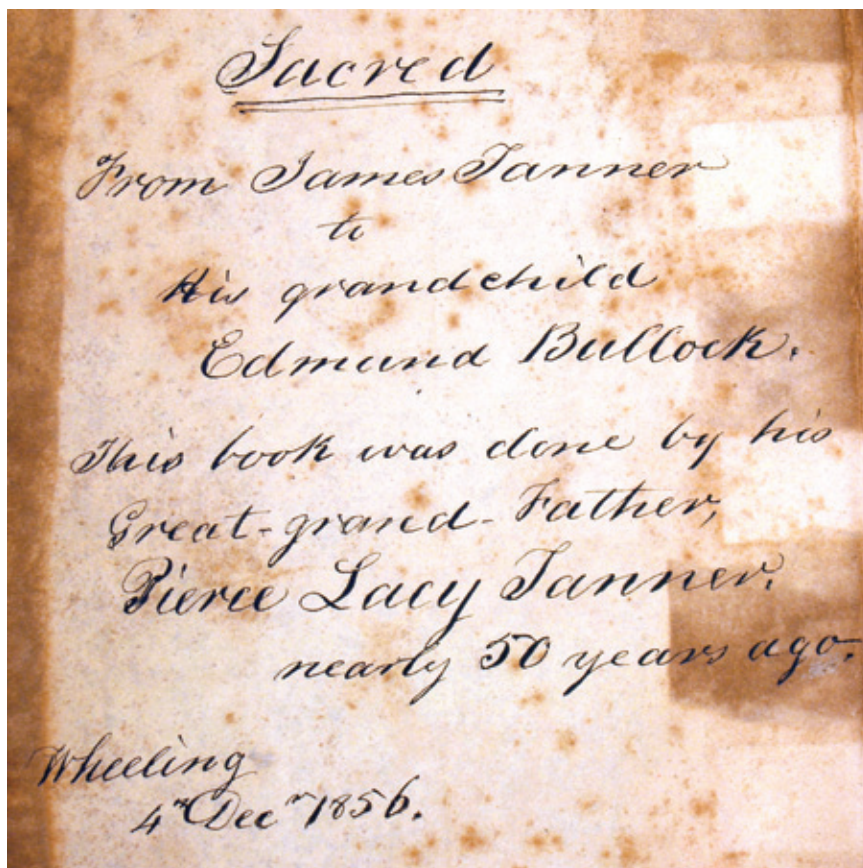 Sacred
From James Tanner
to
His grandchild
Edmund Bullock.
This book was done by his
Great-grand-Father,
Pierce Lacy Tanner.
nearly 50 years ago.
Wheeling
4th Decr 1856.